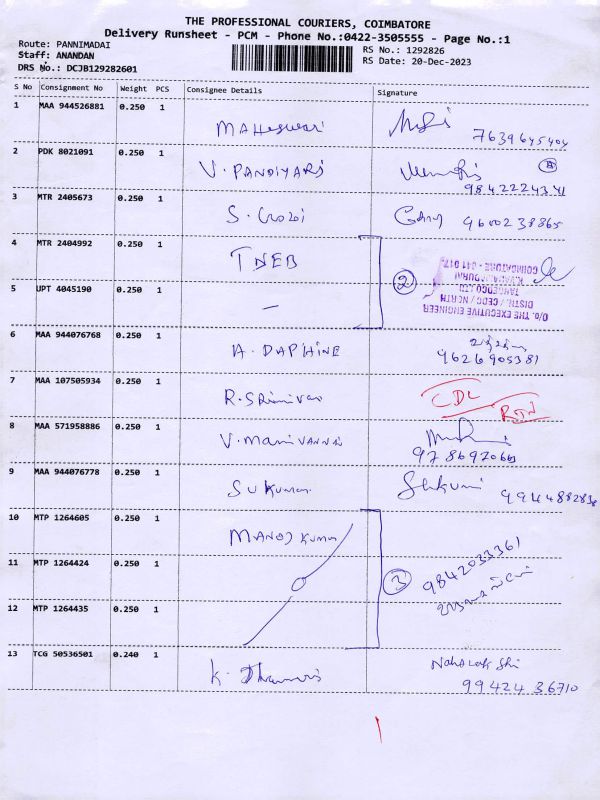 THE PROFESSIONAL COURIERS, COIMBATORE
Delivery Runsheet - PCM - Phone No.:0422-3505555 - Page No.:1
Route: PANNIMADAI RS No.: 1292826
Staff: ANANDAN RS Date: 20-Dec-2023
DRS No.: DCJB129282601
S No Consignment No Weight PCS Consignee Details Signature
1 MAA 944526881 0.250 1
MAHeswari 7639645404
2 PDK 8021091 0.250 1
V. PANDIYARS
9842224341
3 MTR 2405673 0.250 1
S. 9600238865
4 MTR 2404992 0.250 1
TNEB
5 UPT 4045190 0.250 1
2
O/o. THE EXECUTIVE ENGINEER
DISTN. / CEDC / NORTH
TANGEDCO LTD
COIMBATORE - 641 017.
6 MAA 944076768 0.250 1
A. DAPHINE
9626905381
7 MAA 107505934 0.250 1
R. Srinivas CDL
RTN
8 MAA 571958886 0.250 1
V. Manivannan
9
MAA 944076778 0.250 1
SUKumar 9944882838
10 MTP 1264605 0.250 1
MANOJ Kumar
11 MTP 1264424 0.250 1
3 9842033361
12 MTP 1264435 0.250 1
13 TCG 50536501 0.240 1
K.
99424 36710